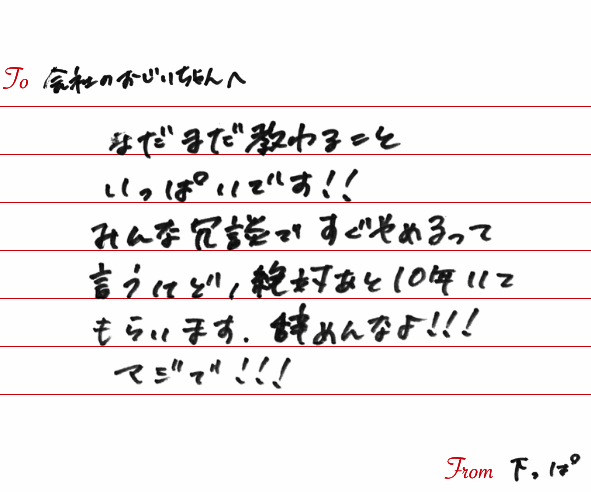 To 会社のおじいちゃんへ
まだまだ教わること
いっぱいです!!
みんな冗談ですぐやめるって
言うけど、絶対あと10年いて
もらいます。辞めんなよ!!!
マジで!!!
From 下っぱ